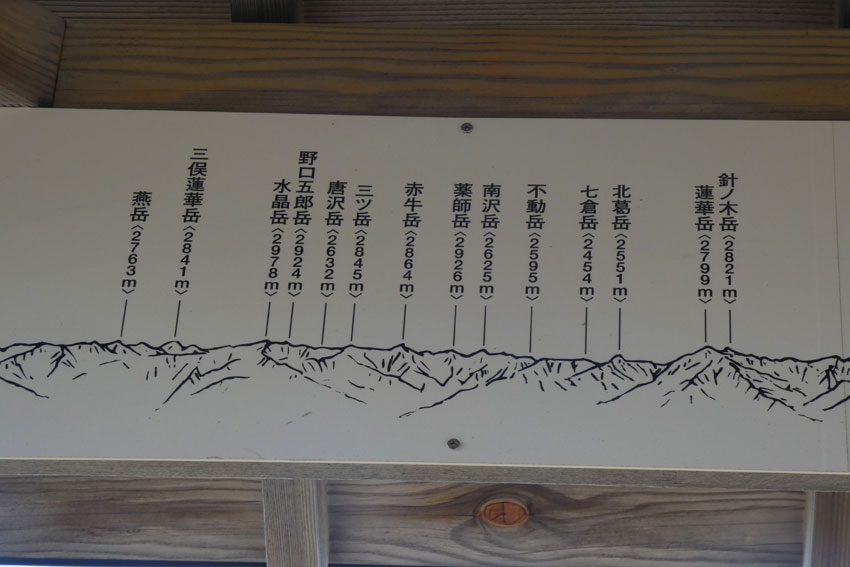 燕岳〈2763m〉
三俣蓮華岳〈2841m〉
水晶岳〈2978m〉
野口五郎岳〈2924m〉
唐沢岳〈2632m〉
三ツ岳〈2845m〉
赤牛岳〈2864m〉
薬師岳〈2926m〉
南沢岳〈2625m〉
不動岳〈2595m〉
七倉岳〈2454m〉
北葛岳〈2551m〉
蓮華岳〈2799m〉
針ノ木岳〈2821m〉